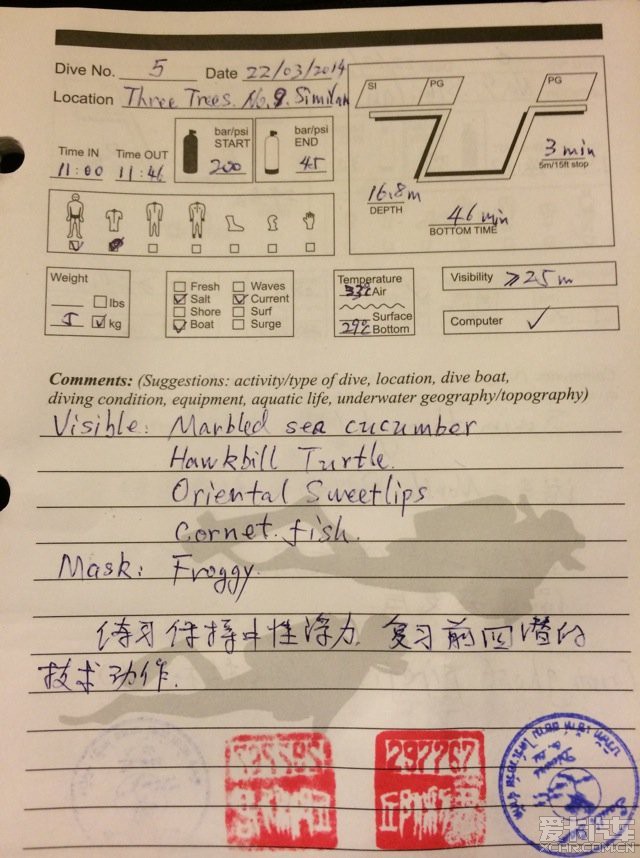 Dive No. 5 Date 22/03/2014
Location Three Trees. No.9. Similan
SI PG PG
Time IN Time OUT
11:00 11:46
bar/psi START 200
bar/psi END 45
3 min
5m/15ft stop
16.8m
DEPTH
46 min
BOTTOM TIME
Weight
lbs
5 kg
Fresh Waves
Salt Current
Shore Surf
Boat Surge
Temperature
33℃ Air
Surface
29℃ Bottom
Visibility ≥25m
Computer ✓
Comments: (Suggestions: activity/type of dive, location, dive boat,
diving condition, equipment, aquatic life, underwater geography/topography)
Visible: Marbled sea cucumber
Hawkbill Turtle.
Oriental Sweetlips
Cornet.fish.
Mask: Froggy.
练习保持中性浮力. 复习前四潜的
技术动作.
297767
爱卡汽车
XCAR.COM.CN